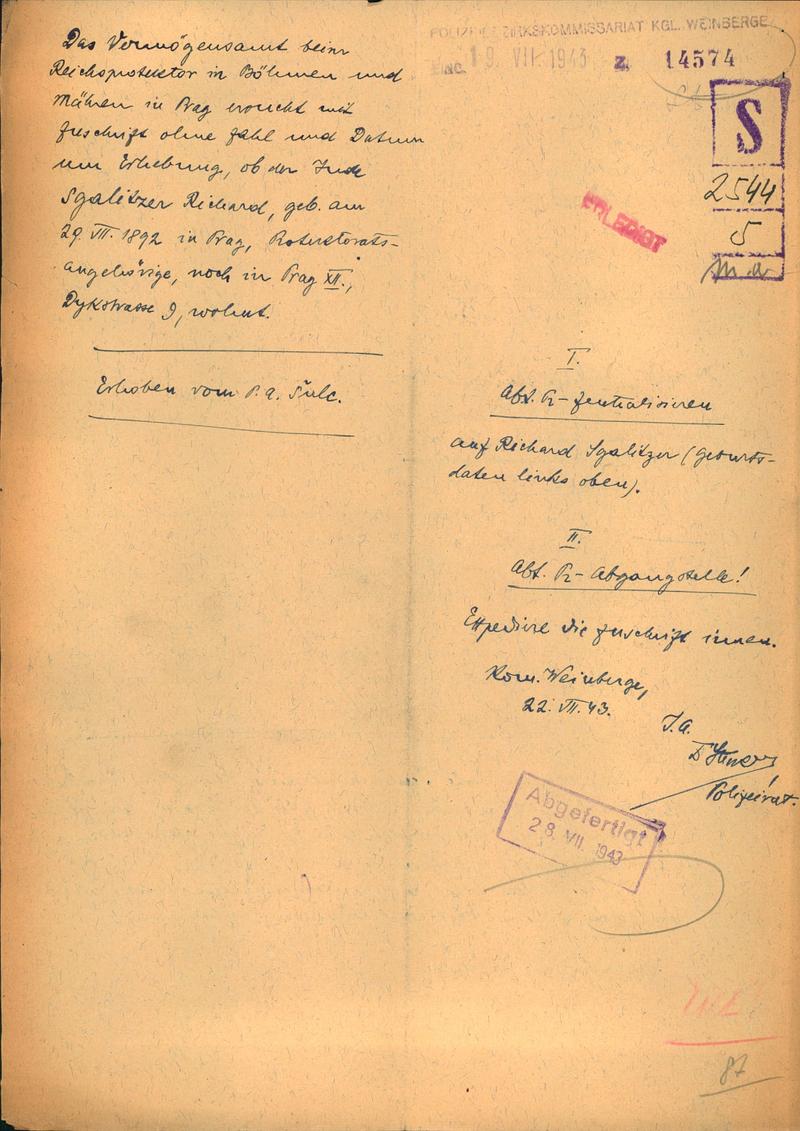 Das Vermögensamt beim
Reichsprotektor in Böhmen und
Mähren in Prag ersucht mit
Zuschrift ohne Zahl und Datum
um Erhebung, ob der Jude
Sgalitzer Richard, geb. am
29. VII. 1892 in Prag, Protektorats-
angehörige, noch in Prag XII.,
Dykstrasse 9, wohnt.
Erhoben vom P.A. Šulc.
POLIZEIBEZIRKSKOMMISSARIAT KGL. WEINBERGE
Eing. 19. VII. 1943 Z. 14574
S
2544
5
ERLEDIGT
I.
Abt. Pr- Zentralisieren
auf Richard Sgalitzer (Geburts-
daten links oben).
II.
Abt. Pr- Abgangstelle!
Expediere die Zuschrift innen.
Kom. Weinberge,
22. VII. 43.
I.A.
Polizeirat.
Abgefertigt
28. VII. 1943
87